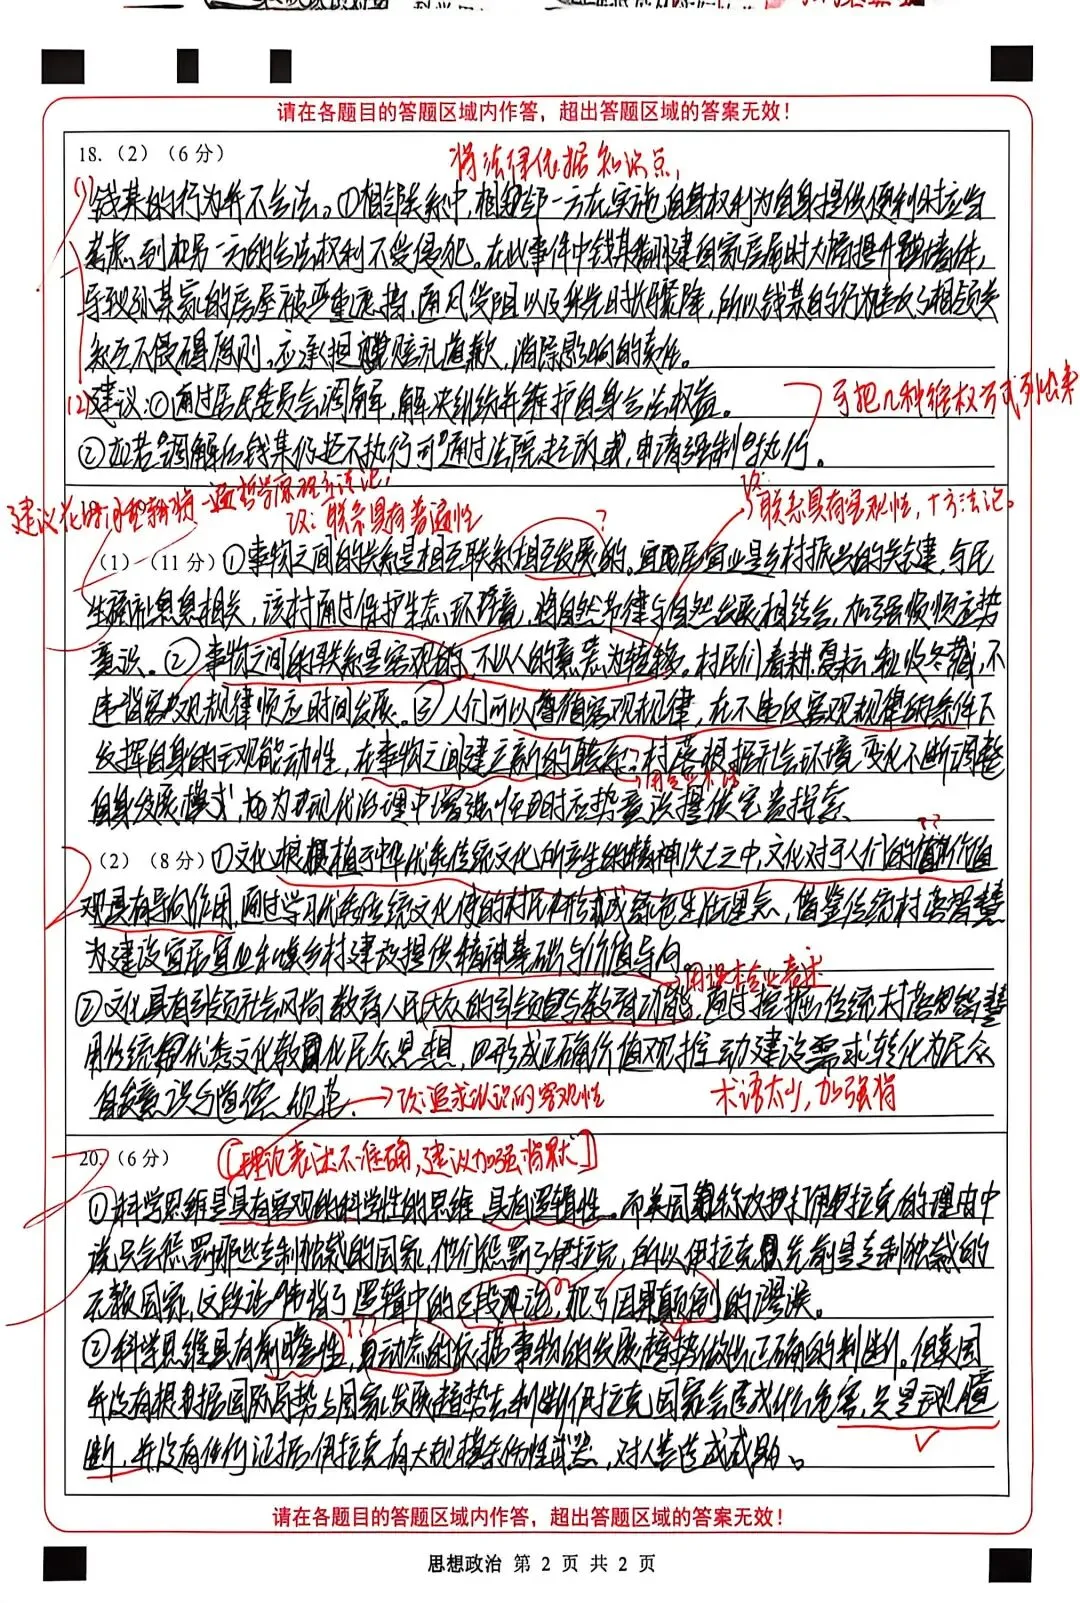 请在各题目的答题区域内作答，超出答题区域的答案无效！
18.（2）（6 分）
背法律依据知识点,
(1)钱某的行为并不合法。①相邻关系中,相邻一方在实施自身权利为自身提供便利时应当
考虑到相另一方的合法权利不受侵犯。在此事件中钱某翻建自家房屋时大幅提升墙体,
导致孙某家的房屋被严重遮挡,通风受阻以及采光时长骤降,所以钱某的行为违反了相邻关
系互不侵碍原则,应承担赔礼道歉、消除影响的责任。
(2)建议:①通过居民委员会调解,解决纠纷并维护自身合法权益。
②若调解后钱某仍拒不执行可通过法院起诉或申请强制执行。
可把几种维权方式列出来
建议花时间重新背一遍哲学原理方法论,
改: 联系具有普遍性
改:联系具有客观性,+方法论。
（1）（11 分）①事物之间的关系是相互联系相互发展的。宜居宜业是乡村振兴的关键,与民
生福祉息息相关,该村通过保护生态环境,将自然节律与自然发展相结合,加强顺应势
意识。②事物之间的联系是客观的,不以人的意志为转移。村民们春耕夏耘、秋收冬藏,不
违背客观规律顺应时间发展。③人们可以遵循客观规律,在不违反客观规律的条件下
发挥自身的主观能动性,在事物之间建立新的联系。村落根据社会环境变化不断调整
自身发展模式,为现代治理中增强性因时应势意识提供宝贵探索
用专业术语
（2）（8 分）①文化根植于中华优秀传统文化所产生的精神沃土之中,文化对于人们的价值
观具有导向作用,通过学习优秀传统文化使的村民形成绿色生活理念,借鉴传统村落智慧
为建设宜居宜业和美乡村建设提供精神基础与价值导向。
用课本专业表述
②文化具有引领社会风尚教育人民大众的引领与教育功能,通过挖掘传统村落智慧
用传统优秀文化教化民众思想,形成正确价值观推动建设需求转化为民众
自发意识与道德规范。
改:追求认识的客观性
术语太少,加强背
20.（6 分）
[理论表述不准确,建议加强背默]
①科学思维是具有客观的科学性的思维,具有逻辑性。而美国宣称攻打伊拉克的理由中
说只会惩罚那些专制独裁的国家,他们惩罚了伊拉克,所以伊拉克先前是专制独裁的
国家,这段话违背了逻辑中的三段论,犯了因果颠倒的谬误。
②科学思维具有前瞻性,动态的依据事物的发展趋势做出正确的判断。但美国
并没有根据国际局势与国家发展趋势去判断伊拉克国家会造成什么危害,只是主观臆
断,并没有任何证据伊拉克有大规模杀伤性武器,对人类造成威胁。
请在各题目的答题区域内作答，超出答题区域的答案无效！
思想政治 第 2 页 共 2 页